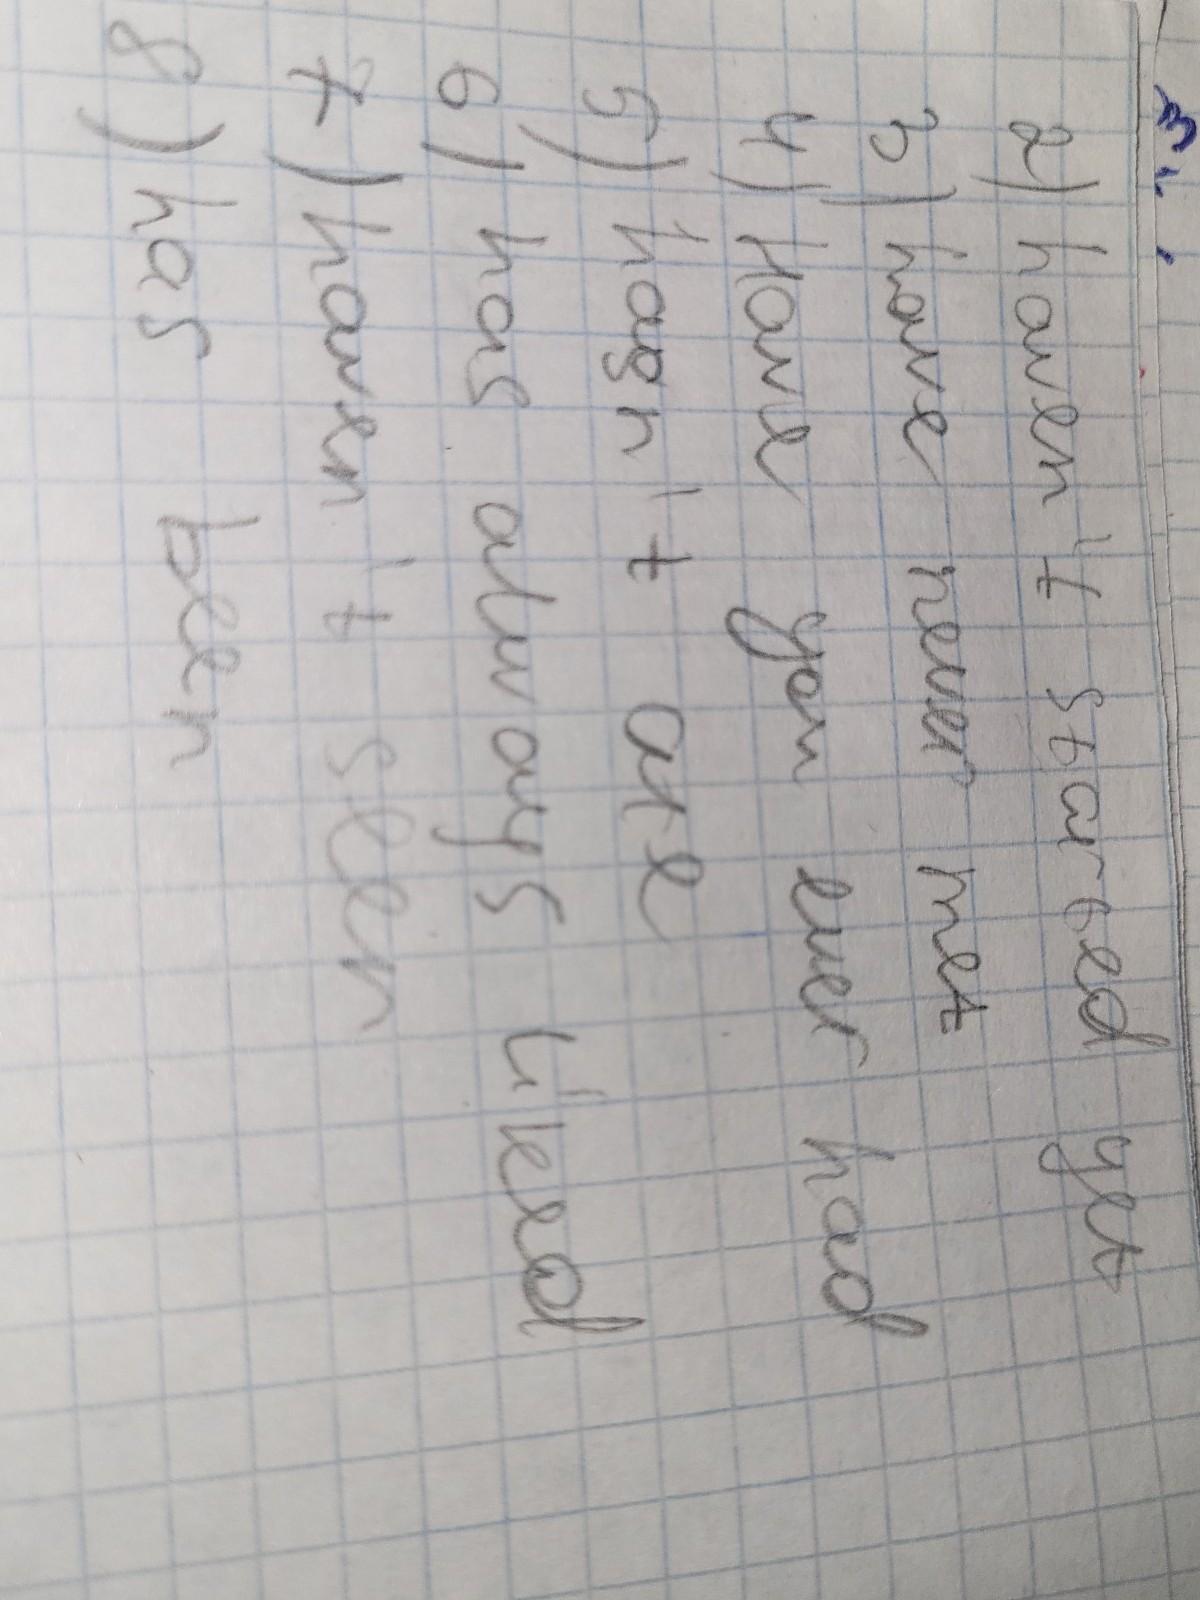 2) haven't started yet
3) have never met
4) Have you ever had
5) hasn't ate
6) has always liked
7) haven't seen
8) has been